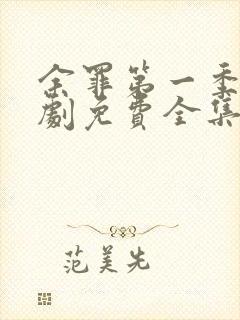 余罪第一季
劇免費全集
范美先